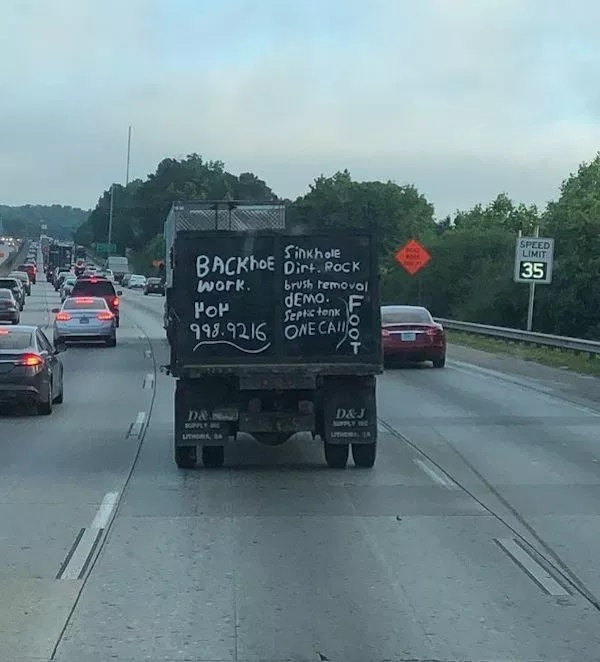 BACKhoE
WORK.
404
998.9216
Sinkhole
Dirt. ROCK
brush removal
dEMO.
Septic tank
ONE CAll
FOOT
SPEED
LIMIT
35
D&
SUPPLY INC
LITHONIA, GA
D&J
SUPPLY INC
LITHONIA, GA